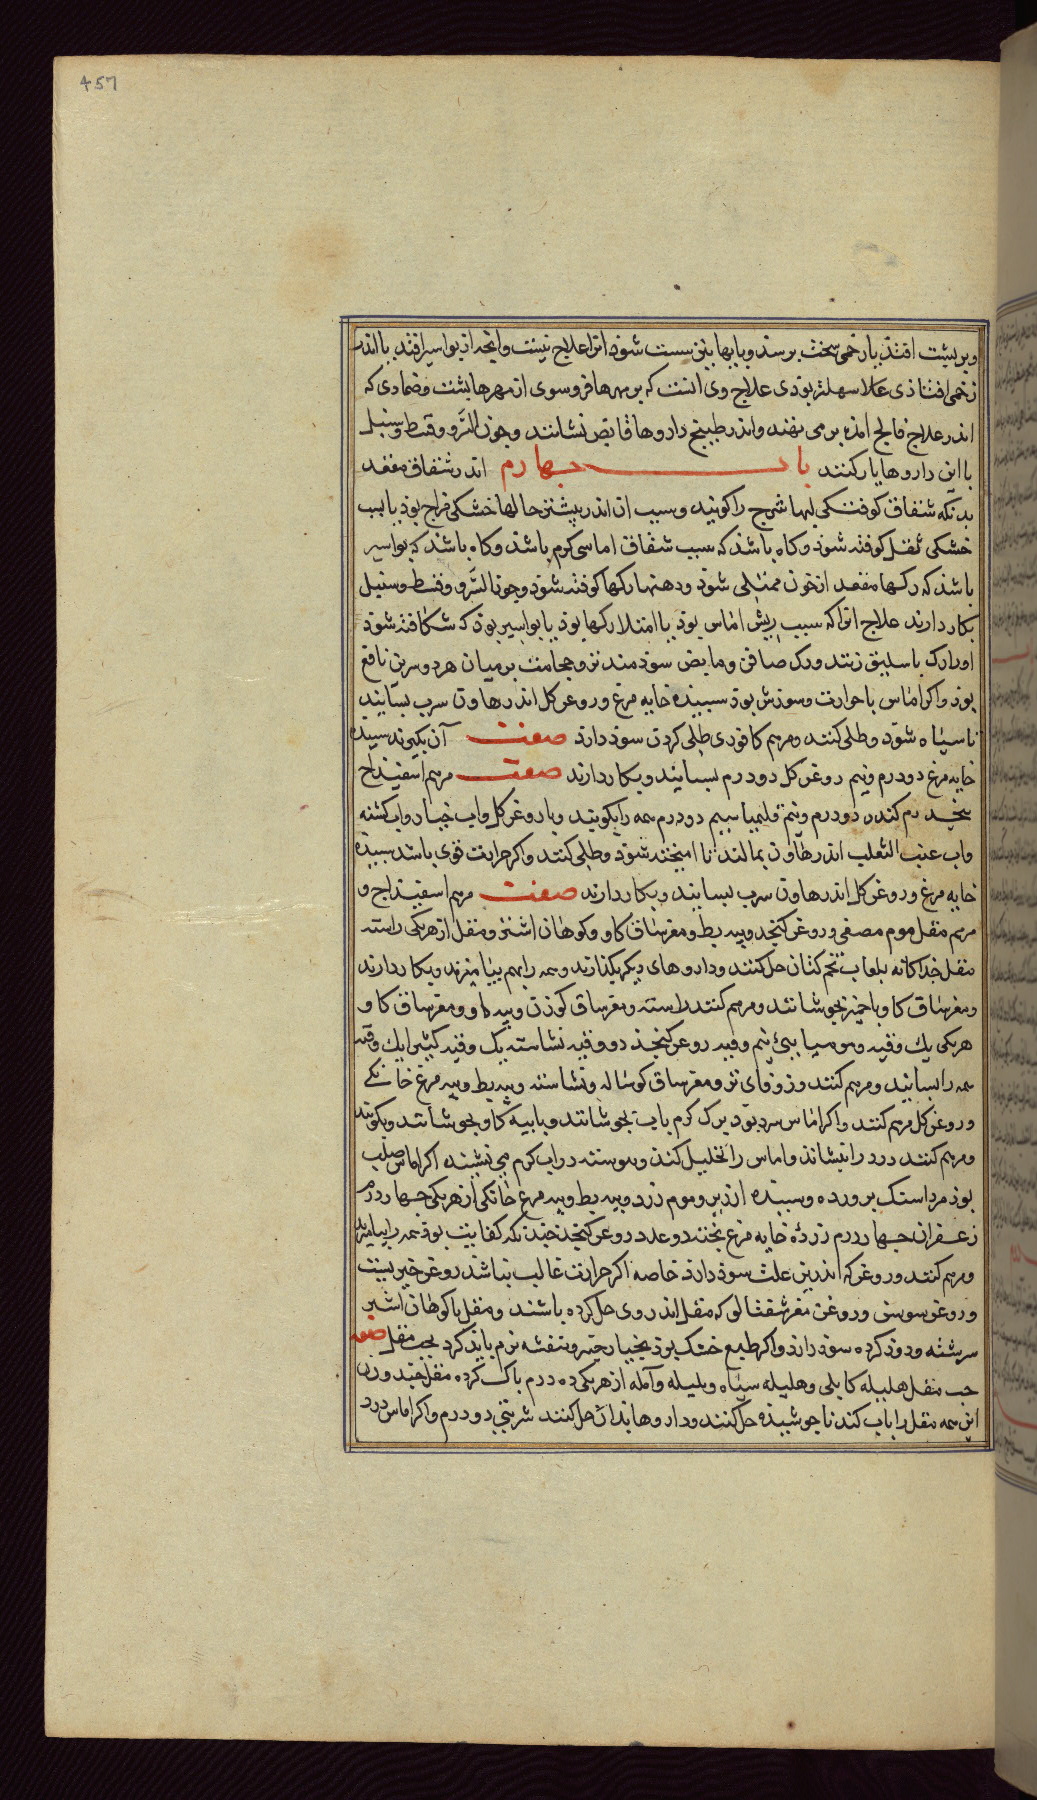 457
و بر پشت افتد یا زخمی سخت برسد و پایها نیز سست شود انرا علاج نیست و انچه از بواسیر افتد یا اندر
زخمی افتاذی علا سهلتر بودی علاج وی انست که بر مهرها فروسوی از مهرهای پشت و ضمادی که
اندر علاج فالج امذه بر می نهند و اندر طبیخ داروها قابض نشانند و جوز السرو و قسط و سنبل
با این داروها یار کنند باب چهارم اندر شقاق مقعد
بدنکه شقاق کوفتکی لبها شرج را کویند و سبب ان اندر بیشتر حالها خشکی مزاج بوذ یا بسبب
خشکی ثفل کوفته شوذ و کاه باشذ که سبب شقاق اماسی کرم باشذ و کاه باشذ که بواسیر
باشذ که رکها مقعد از خون ممتلی شوذ و دهنها رکها کوفته شوذ و جوز السرو و قسط و سنبل
بکار دارند علاج انرا که سبب ریش اماس بوذ یا امتلا رکها بوذ یا بواسیر بوذ که شکافته شوذ
اورا رک باسلیق زنند و رک صافن و مابض سوذمند تر و حجامت بر میان هر دو سرین نافع
بوذ و اکر اماس با حرارت و سوزش بوذ سبیذه خایه مرغ و روغن کل اندر هاون سرب بسایند
تا سیاه شوذ و طلی کنند و مرهم کافوری طلی کردن سوذ دارذ صفت آن بکیرند سبیده
خایه مرغ دو درم و نیم روغن کل دو درم بسایند و بکار دارند صفت مرهم اسفیذاج
دو درم و نیم قلیمیا سیم دو درم همه را بکوبند و با روغن کل و اب خیار و اب کشنه
و اب عنب الثعلب اندر هاون بمالند تا امیخته شوذ و طلی کنند و اکر حرارت قوی باشد سبیذه
خایه مرغ و روغن کل اندر هاون سرب بسایند و بکار دارند صفت مرهم اسفیذاج و
مرهم مقل موم مصفی و روغن کنجد و پیه بط و مغز ساق کاو و کوهان اشتر و مقل از هر یکی راسته
مقل جذاکانه بلعاب تخم کتان حل کنند و داروهای دیکر بکذازند و همه را بهم بیامیزند و بکار دارند
و مغز ساق کاو با خمیر بجوشانند و مرهم کنند مغز ساق کوزن و پیه کاو و مغز ساق کاو
هر یکی یک وقیه و مومیایی نیم وقیه روغن کنجد دو وقیه نشاسته یک وقیه کثیرا یک وقیه
همه را بسایند و مرهم کنند و زوفای تر و مغز ساق کوساله و نشاسته و پیه بط و پیه مرغ خانکی
و روغن کل مرهم کنند و اکر اماس سرد بوذ برک کرم باب بجوشانند و با پیه کاو بجوشانند و بکوبند
و مرهم کنند درد را بنشاند و اماس را تحلیل کند و پیوسته در اب کرم می نشیند اکر اماس صلب
بوذ مرداسنک پرورده و سبیذه ارزیز و موم زرد و پیه بط و پیه مرغ خانکی از هر یکی چهار درم
زعفران چهار درم زردۀ خایه مرغ پخته دو عدد روغن کنجد چندانکه کفایت بوذ همه را بیامیزند
و مرهم کنند و روغن که اندرین علت سوذ دارذ خاصه اکر حرارت غالب نباشد روغن خیر بیست
و روغن سوسن و روغن مغز شفتالو که مقل اندر وی حل کرده باشند و مقل با کوهان اشتر
سرشته و دوذ کرده سوذ دارذ و اکر طبع خشک بوذ بخیارچنبر و بنفشه نرم بایذ کرد بحب مقل صفه
حب مقل هلیله کابلی و هلیله سیاه و بلیله و آمله از هر یکی ده درم پاک کرده مقل چند وزن
این همه مقل را باب کندنا جوشیذه حل کنند و داروها بذان حل کنند شربتی دو درم و اکر اماس درد